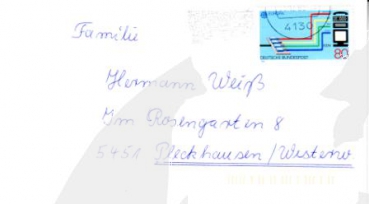 Familie
4130
80
DEUTSCHE BUNDESPOST
Hermann Weiß
Im Rosengarten 8
5451 Pleckhausen/Westerw.